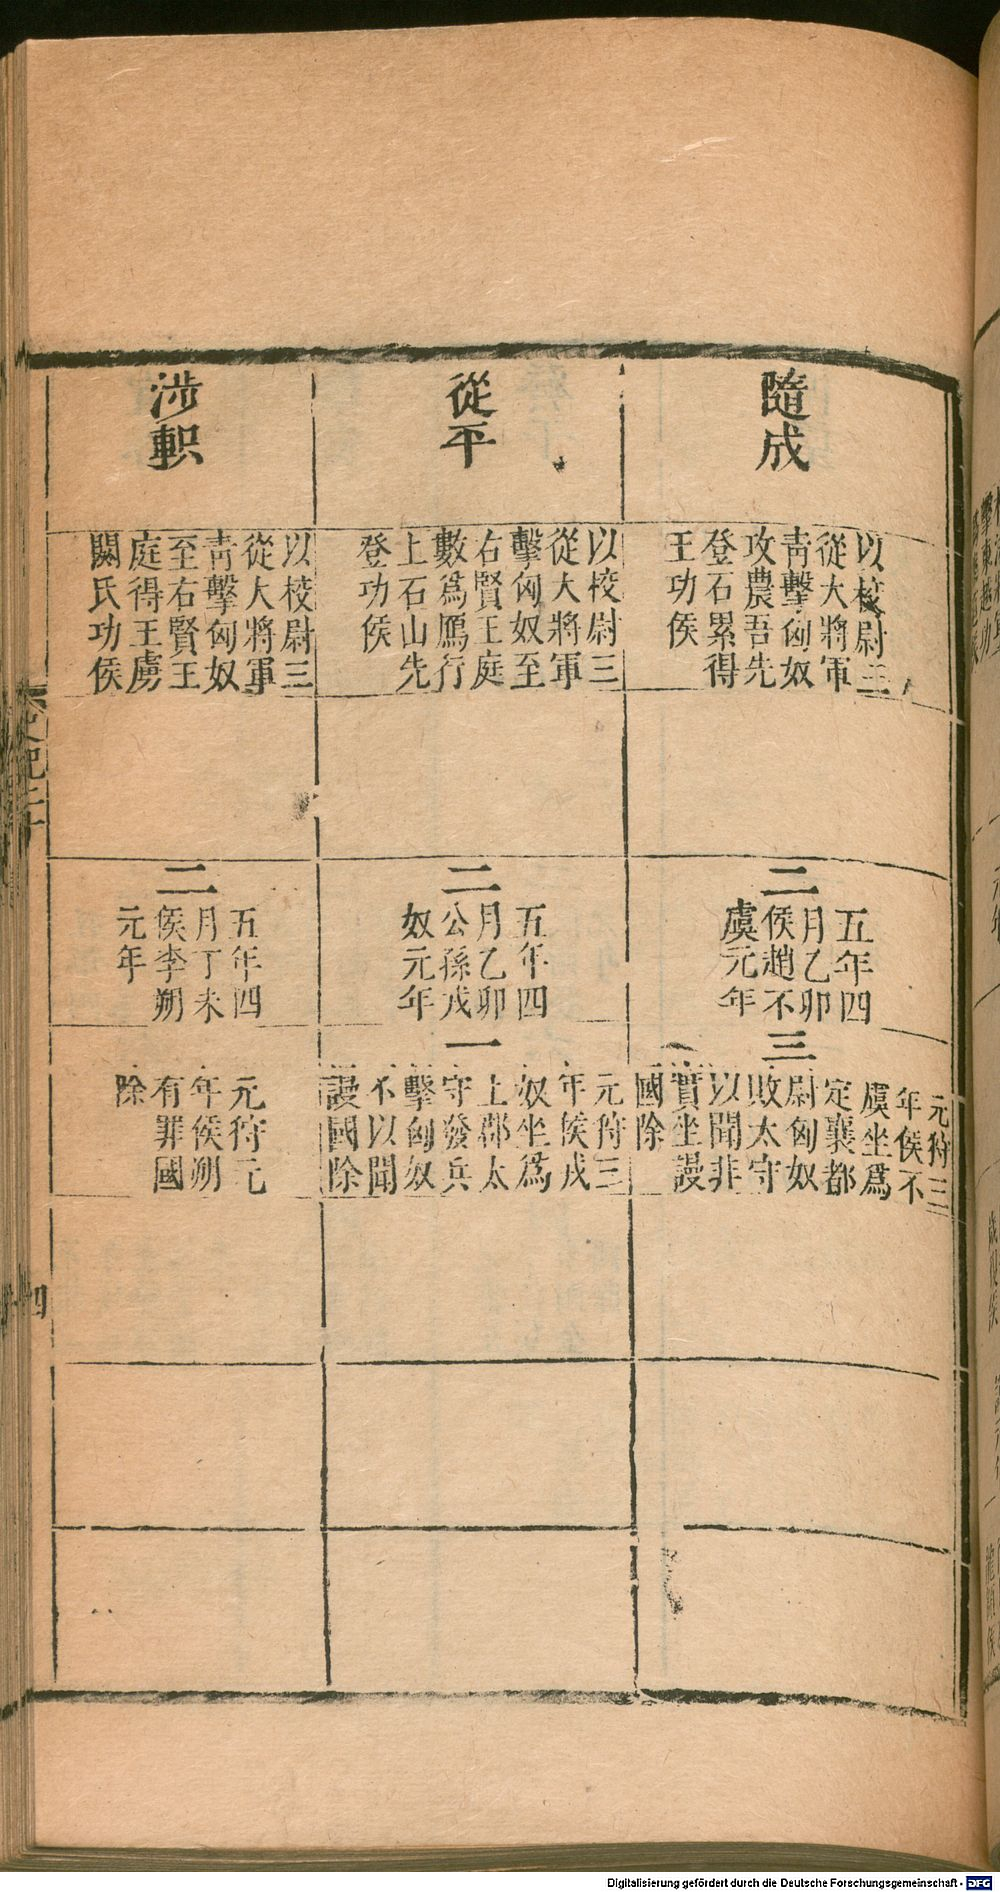 隨成
以校尉三
從大將軍
靑擊匈奴
攻農吾先
登石累得
王功侯
二
五年四
月乙卯
侯趙不
虞元年
三
元狩三
年侯不
虞坐爲
定襄都
尉匈奴
敗太守
以聞非
實坐謾
國除
從平
以校尉三
從大將軍
擊匈奴至
右賢王庭
數爲鴈行
上石山先
登功侯
二
五年四
月乙卯
公孫戎
奴元年
一
元狩三
年侯戎
奴坐爲
上郡太
守發兵
擊匈奴
不以聞
謾國除
涉軹
以校尉三
從大將軍
靑擊匈奴
至右賢王
庭得王虜
閼氏功侯
二
五年四
月丁未
侯李朔
元年
元狩元
年侯朔
有罪國
除
史記二十
四
Digitalisierung gefördert durch die Deutsche Forschungsgemeinschaft - DFG